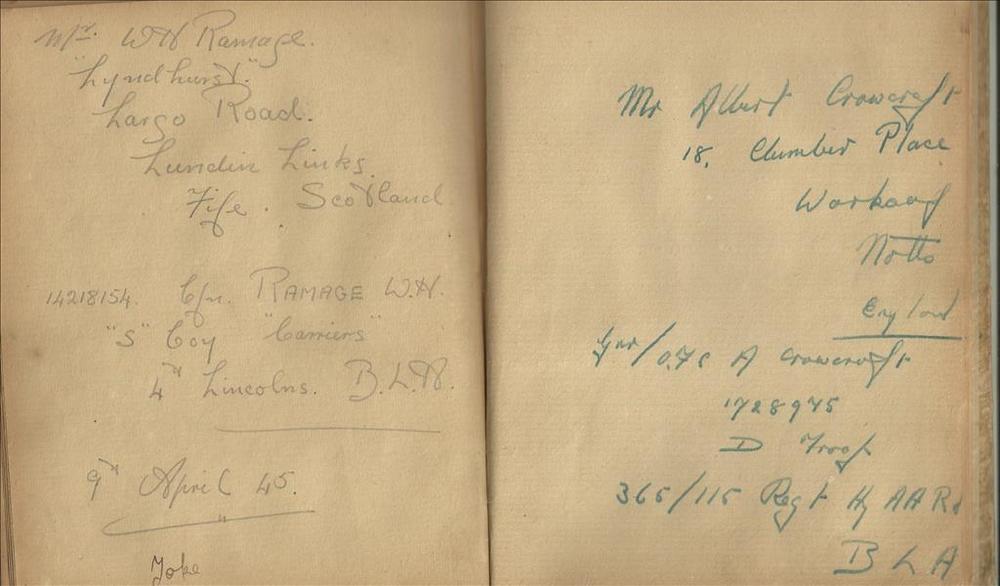 Mr. W H Ramage.
"Lyndhurst."
Largo Road.
Lundin Links.
Fife. Scotland
14218154. Cfn. RAMAGE W.H.
"S" Coy "Carriers"
4th Lincolns. B.L.A.
9th April 45.
Joke
Mr Albert Crowcroft
18. Clumber Place
Worksop
Notts
England
Gnr/ A Crowcroft
1728975
D Troop
365/115 Regt Hy AA RA
B L A